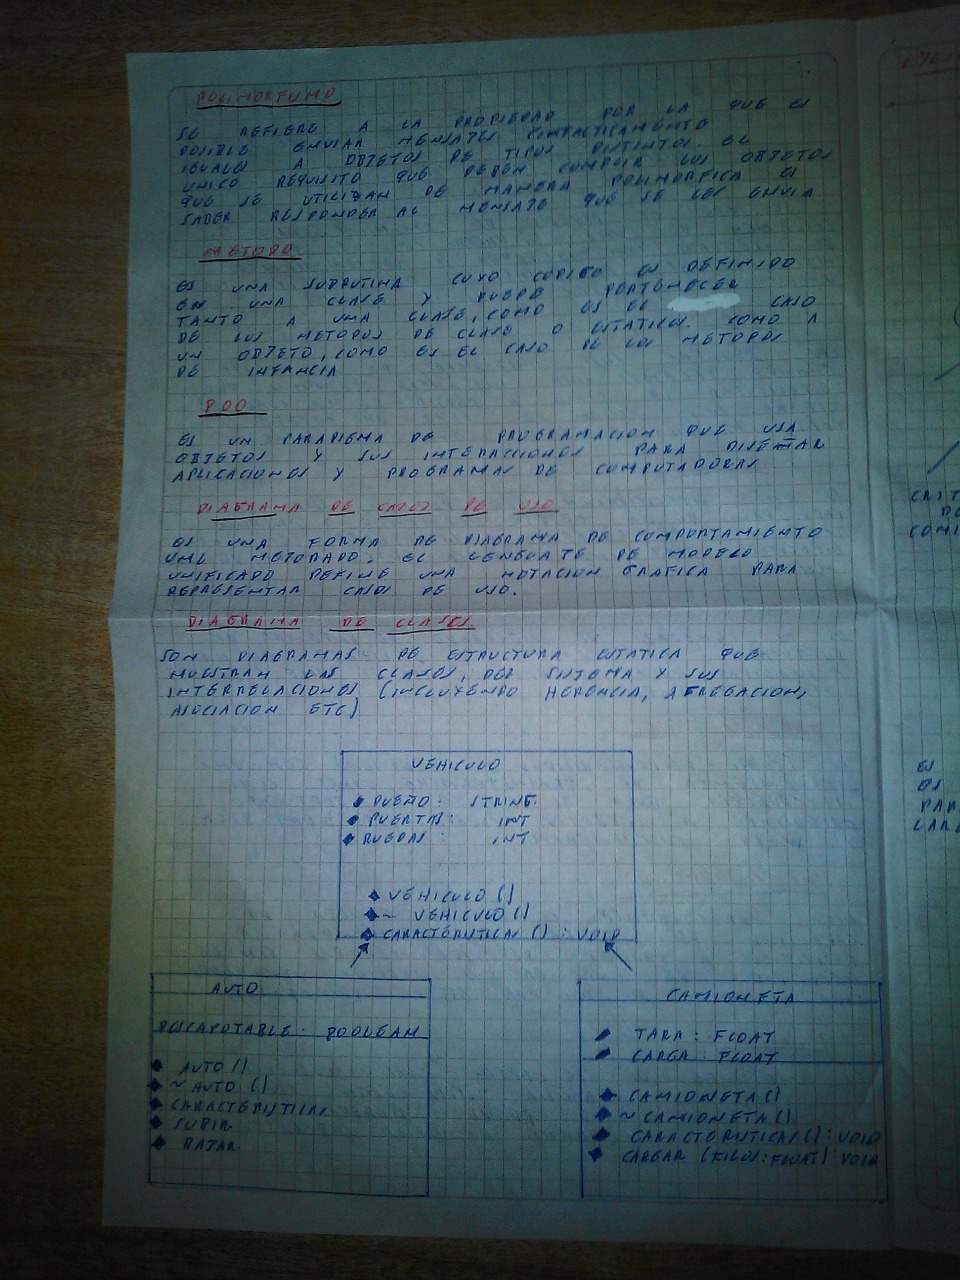 POLIMORFISMO
SE REFIERE A LA PROPIEDAD POR LA QUE ES
POSIBLE ENVIAR MENSAJES SINTACTICAMENTE
IGUALES A OBJETOS DE TIPOS DISTINTOS. EL
UNICO REQUISITO QUE DEBEN CUMPLIR LOS OBJETOS
QUE SE UTILIZAN DE MANERA POLIMORFICA ES
SABER RESPONDER AL MENSAJE QUE SE LES ENVIA
METODO
ES UNA SUBRUTINA CUYO CODIGO ES DEFINIDO
EN UNA CLASE Y PUEDE PERTENECER
TANTO A UNA CLASE, COMO ES EL CASO
DE LOS METODOS DE CLASE O ESTATICOS. COMO A
UN OBJETO, COMO ES EL CASO DE LOS METODOS
DE INFANCIA
POO
ES UN PARADIGMA DE PROGRAMACION QUE USA
OBJETOS Y SUS INTERACCIONES PARA DISEÑAR
APLICACIONES Y PROGRAMAS DE COMPUTADORAS
DIAGRAMA DE CASOS DE USO
ES UNA FORMA DE DIAGRAMA DE COMPORTAMIENTO
UML MEJORADO. EL LENGUAJE DE MODELO
UNIFICADO DEFINE UNA NOTACION GRAFICA PARA
REPRESENTAR CASOS DE USO.
DIAGRAMA DE CLASES
SON DIAGRAMAS DE ESTRUCTURA ESTATICA QUE
MUESTRAN LAS CLASES, DEL SISTEMA Y SUS
INTERRELACIONES (INCLUYENDO HERENCIA, AGREGACION,
ASOCIACION ETC)
VEHICULO
DUEÑO: STRING
PUERTAS: INT
RUEDAS: INT
VEHICULO ()
~ VEHICULO ()
CARACTERISTICAS () : VOID
AUTO
DESCAPOTABLE: BOOLEAN
AUTO ()
~ AUTO ()
CARACTERISTICAS
SUBIR
BAJAR
CAMIONETA
TARA : FLOAT
CARGA : FLOAT
CAMIONETA ()
~ CAMIONETA ()
CARACTERISTICAS () : VOID
CARGAR (KILOS: FLOAT) VOID